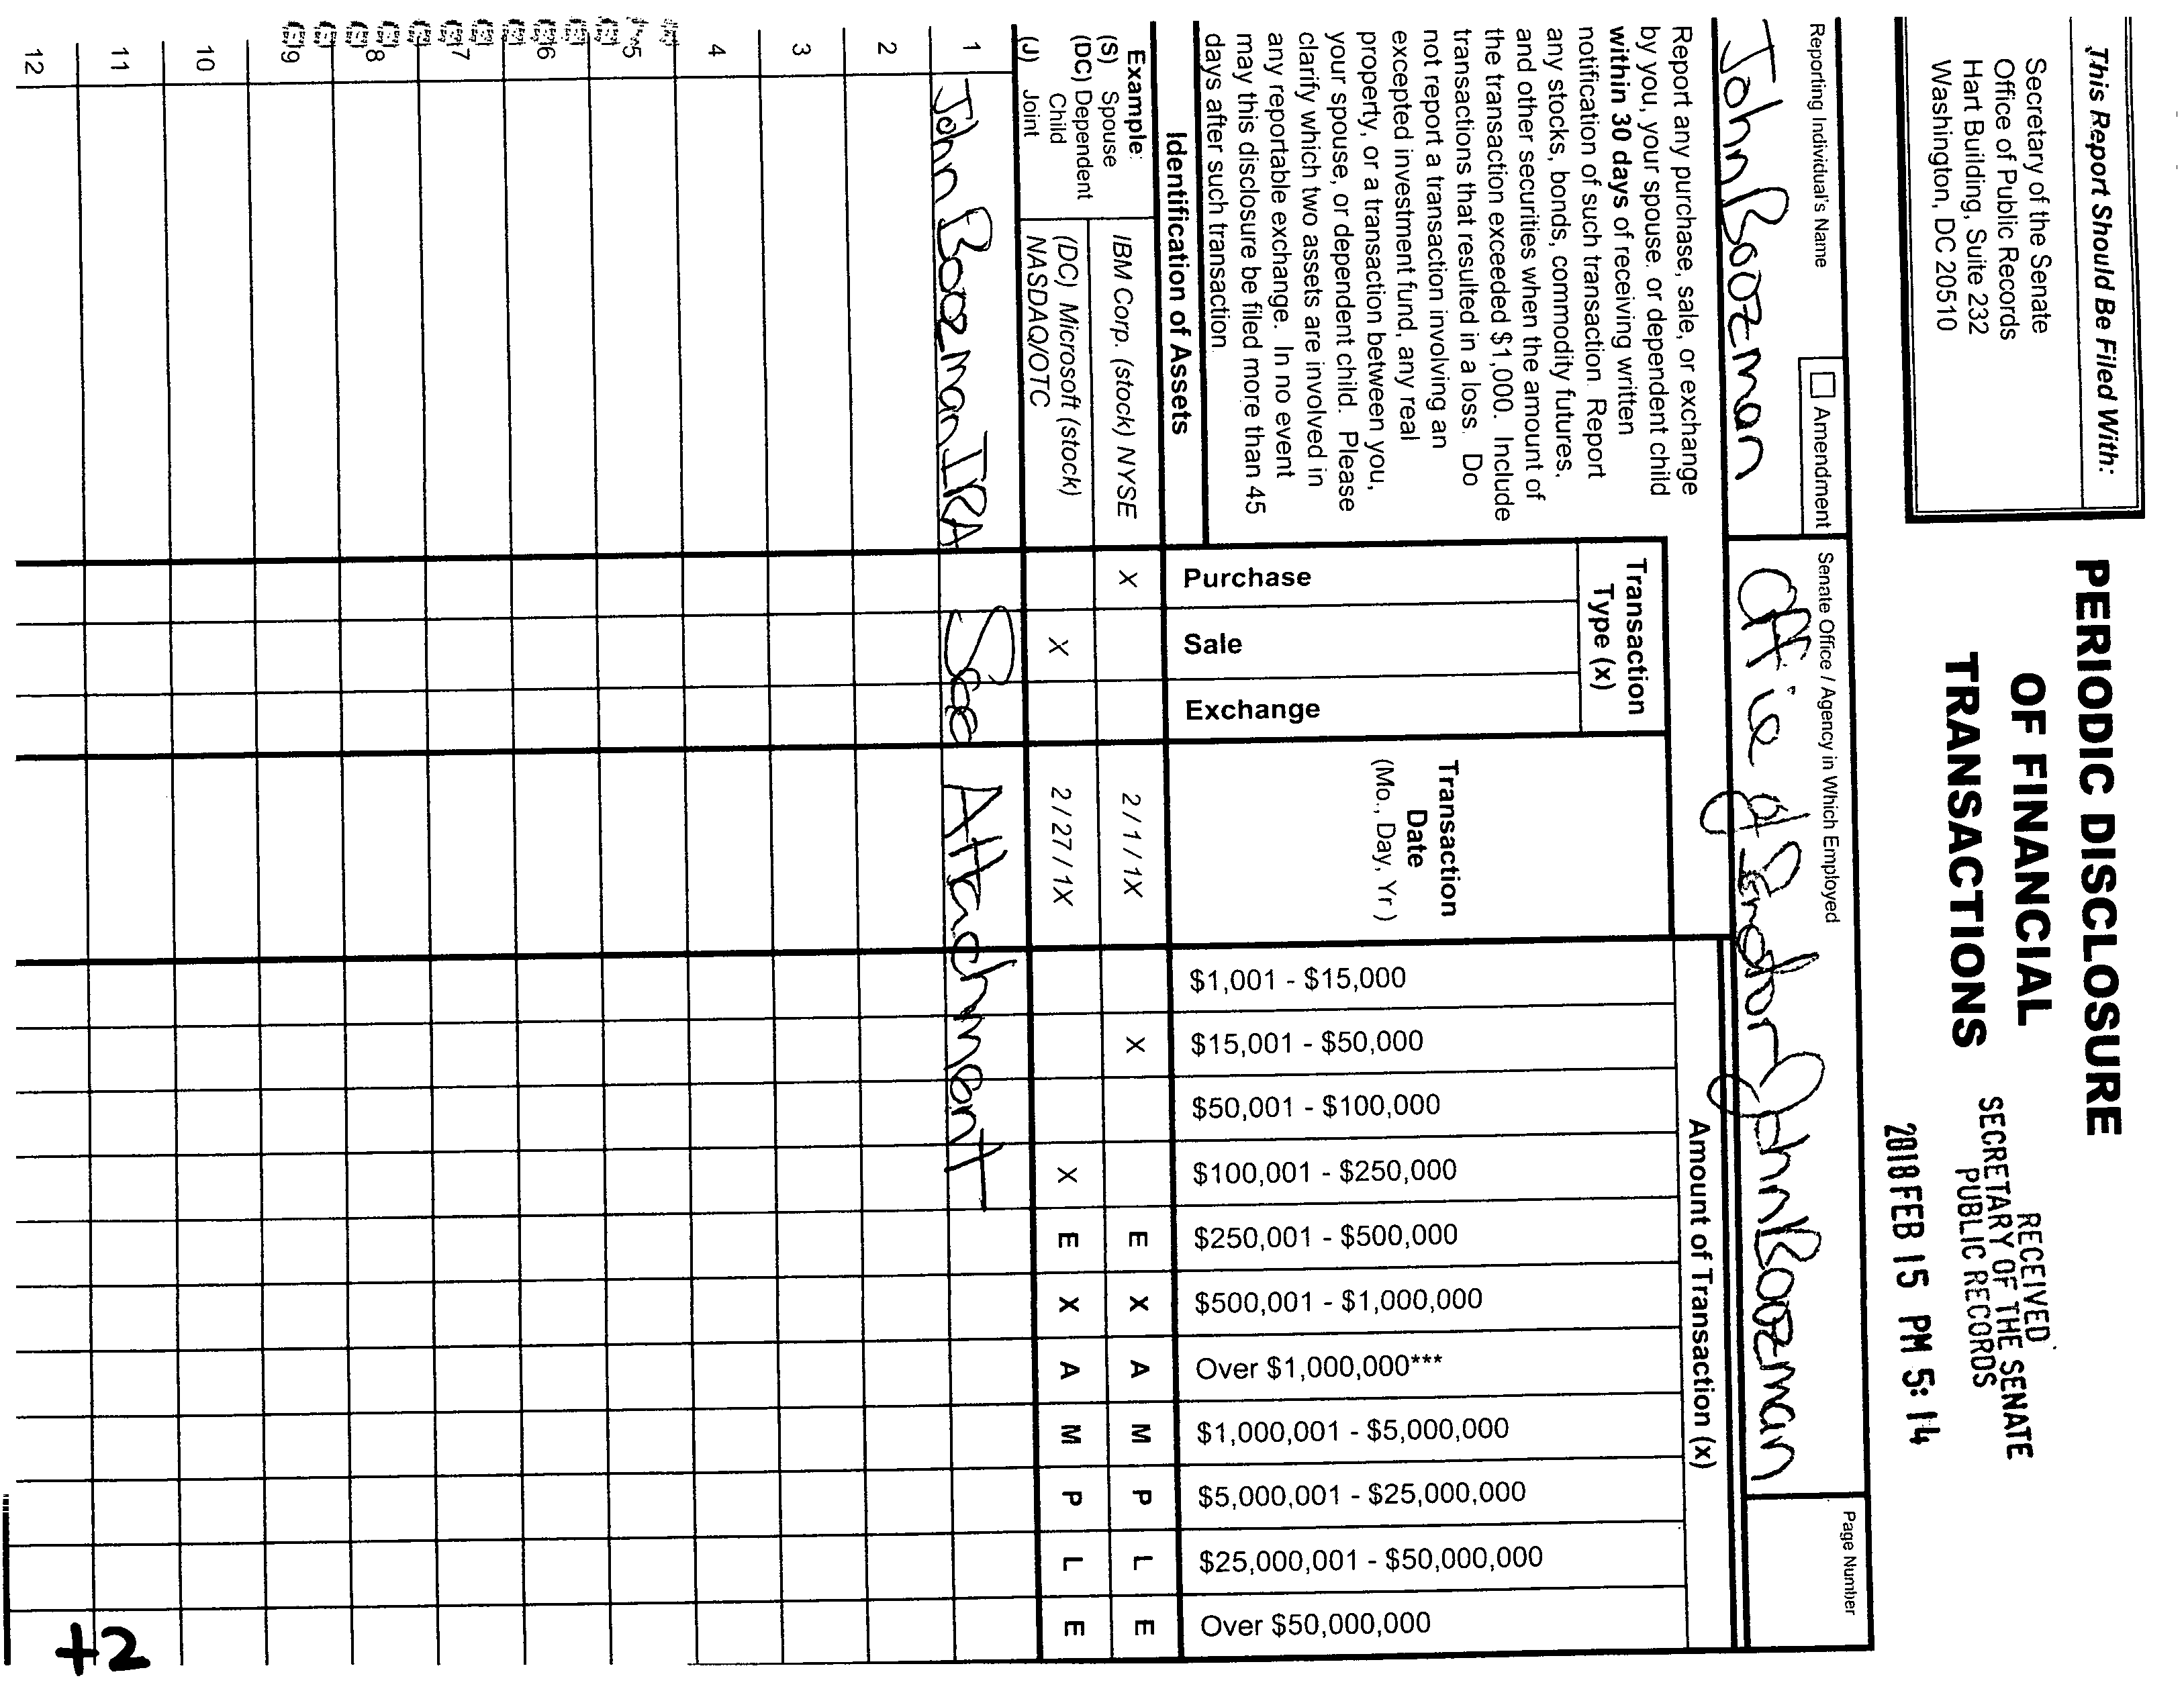 This Report Should Be Filed With:
Secretary of the Senate
Office of Public Records
Hart Building, Suite 232
Washington, DC 20510
PERIODIC DISCLOSURE
OF FINANCIAL
TRANSACTIONS
RECEIVED
SECRETARY OF THE SENATE
PUBLIC RECORDS
2018 FEB 15 PM 5:14
Reporting Individual's Name
John Boozman
Amendment
Senate Office / Agency in Which Employed
Office of Senator John Boozman
Page Number
Report any purchase, sale, or exchange
by you, your spouse, or dependent child
within 30 days of receiving written
notification of such transaction. Report
any stocks, bonds, commodity futures,
and other securities when the amount of
the transaction exceeded $1,000. Include
transactions that resulted in a loss. Do
not report a transaction involving an
excepted investment fund, any real
property, or a transaction between you,
your spouse, or dependent child. Please
clarify which two assets are involved in
any reportable exchange. In no event
may this disclosure be filed more than 45
days after such transaction.
Transaction
Type (x)
Amount of Transaction (x)
Identification of Assets
Purchase
Sale
Exchange
Transaction
Date
(Mo., Day, Yr.)
$1,001 - $15,000
$15,001 - $50,000
$50,001 - $100,000
$100,001 - $250,000
$250,001 - $500,000
$500,001 - $1,000,000
Over $1,000,000***
$1,000,001 - $5,000,000
$5,000,001 - $25,000,000
$25,000,001 - $50,000,000
Over $50,000,000
Example:
(S) Spouse
(DC) Dependent
Child
(J) Joint
IBM Corp. (stock) NYSE X 2/1/1X X E X A M P L E
(DC) Microsoft (stock)
NASDAQ/OTC X 2/27/1X X E X A M P L E
1 John Boozman IRA See Attachment
2
3
4
5
6
7
8
9
10
11
12
+2